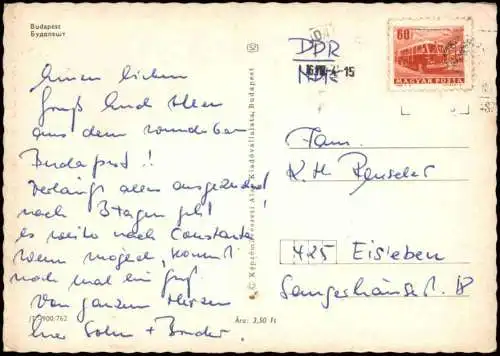 Budapest
Будапешт
Einen lieben
Gruß Euch Allen
aus dem wunderbaren
Budapest!!
verläuft alles ausgezeichnet
nach 3 Tagen geht
es weiter nach Constanta!
Wenn möglich, kommt
noch mal ein Gruß
Von ganzem Herzen
Euer Sohn + Bruder
900/762
Ára: 2,50 Ft
C. Képzőművészeti Alap Kiadóvállalata, Budapest
52
DDR
NDK
60
MAGYAR POSTA
Fam.
K. H.
425 Eisleben
Sangerhäuserst. 18